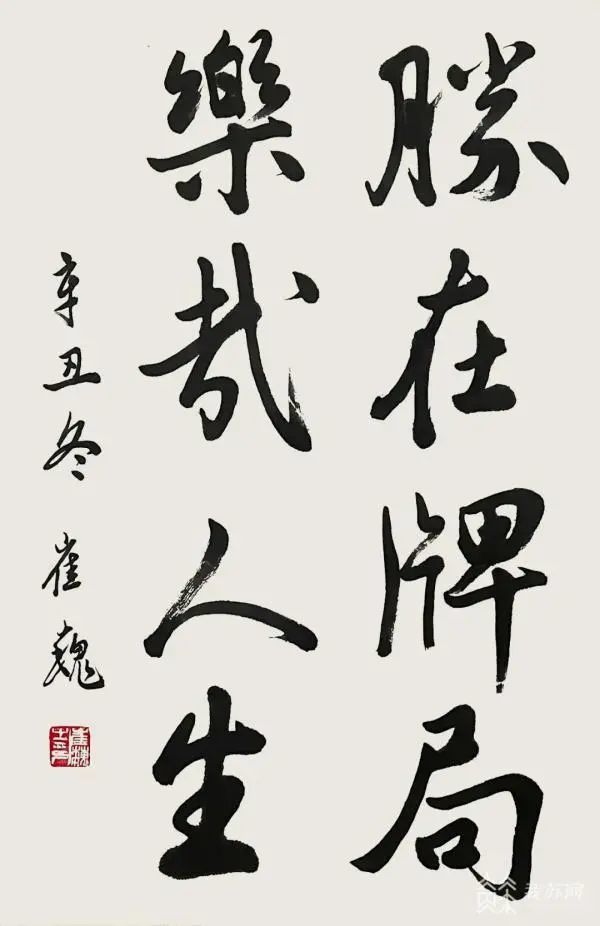 勝在牌局
樂哉人生
辛丑冬 崔巍
我苏网